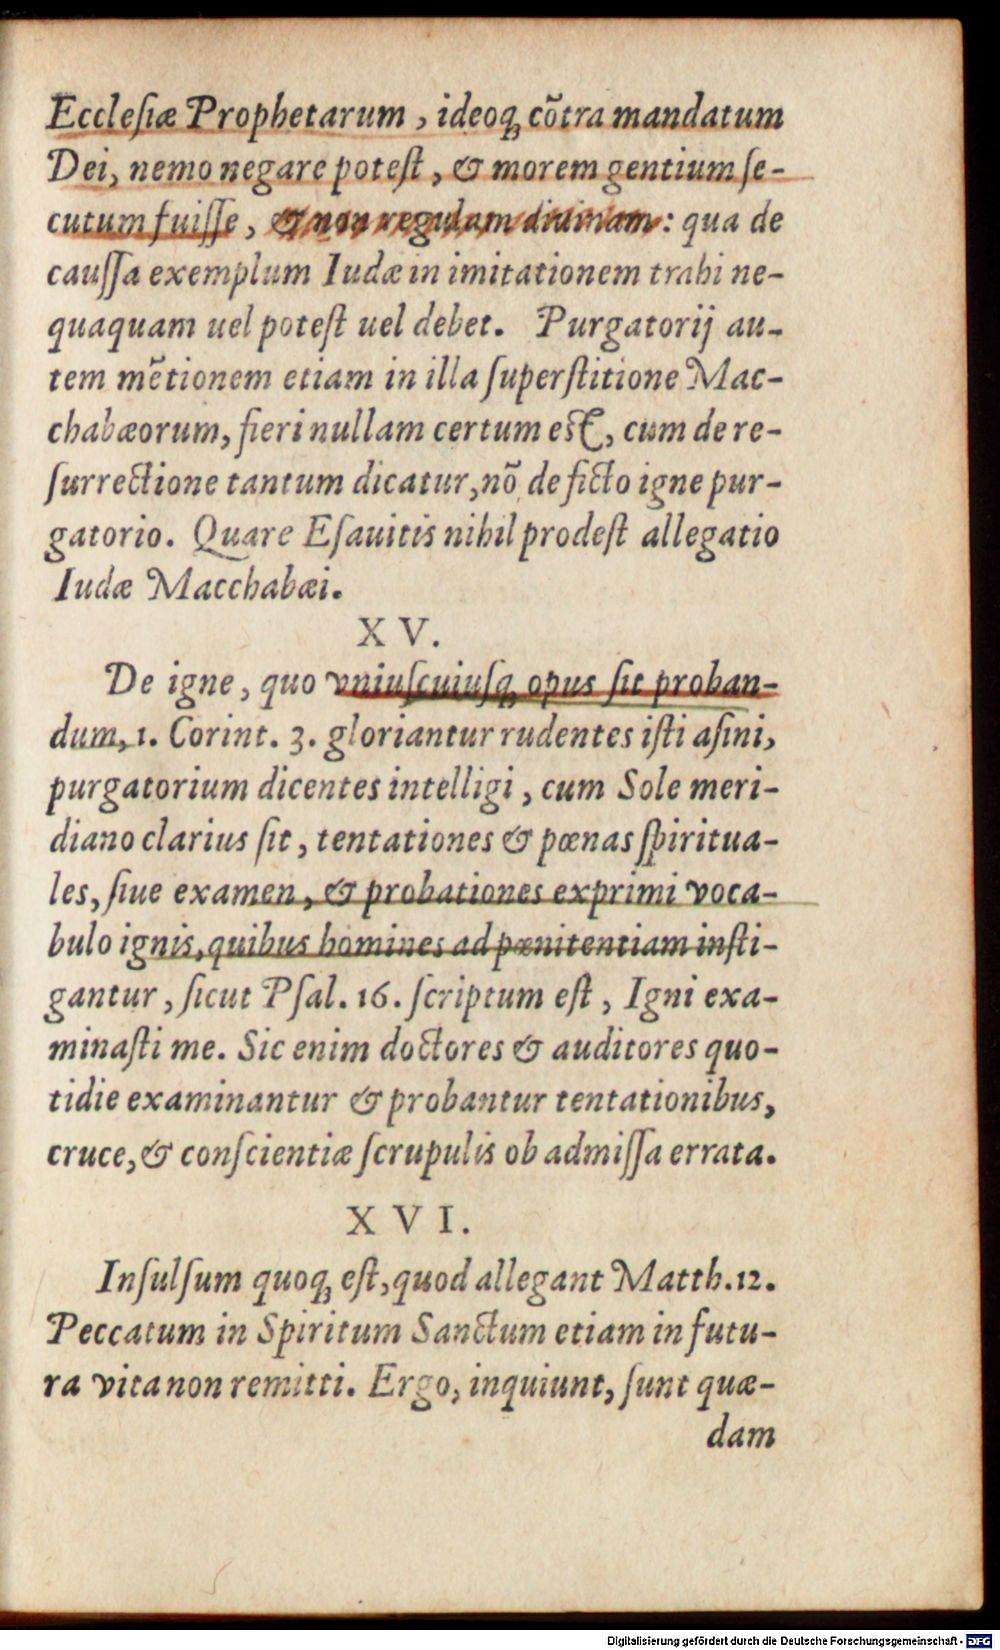 Ecclesiæ Prophetarum, ideoqꝫ cõtra mandatum
Dei, nemo negare potest, & morem gentium se-
cutum fuisse, & non regulam diuinam: qua de
caussa exemplum Iudæ in imitationem trahi ne-
quaquam uel potest uel debet. Purgatorij au-
tem mẽtionem etiam in illa superstitione Mac-
chabæorum, fieri nullam certum est, cum de re-
surrectione tantum dicatur, nõ de ficto igne pur-
gatorio. Quare Esauitis nihil prodest allegatio
Iudæ Macchabæi.
XV.
De igne, quo vniuscuiusqꝫ opus sit proban-
dum, 1. Corint. 3. gloriantur rudentes isti asini,
purgatorium dicentes intelligi, cum Sole meri-
diano clarius sit, tentationes & pœnas spiritua-
les, siue examen, & probationes exprimi voca-
bulo ignis, quibus homines ad pænitentiam insti-
gantur, sicut Psal. 16. scriptum est, Igni exa-
minasti me. Sic enim doctores & auditores quo-
tidie examinantur & probantur tentationibus,
cruce, & conscientiæ scrupulis ob admissa errata.
XVI.
Insulsum quoqꝫ est, quod allegant Matth. 12.
Peccatum in Spiritum Sanctum etiam in futu-
ra vita non remitti. Ergo, inquiunt, sunt quæ-
dam
Digitalisierung gefördert durch die Deutsche Forschungsgemeinschaft - DFG